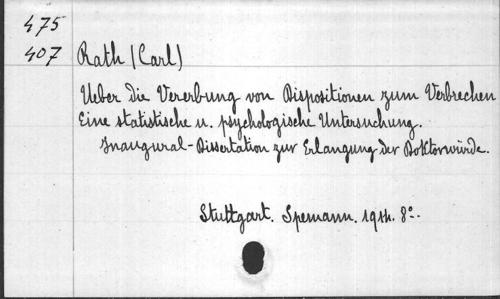 475
407 Rath (Carl)
Ueber die Vererbung von Dispositionen zum Verbrechen
Eine statistische u. psychologische Untersuchung.
Inaugural-Dissertation zur Erlangung der Doktorwürde.
Stuttgart. Spemann. 1914. 8°.